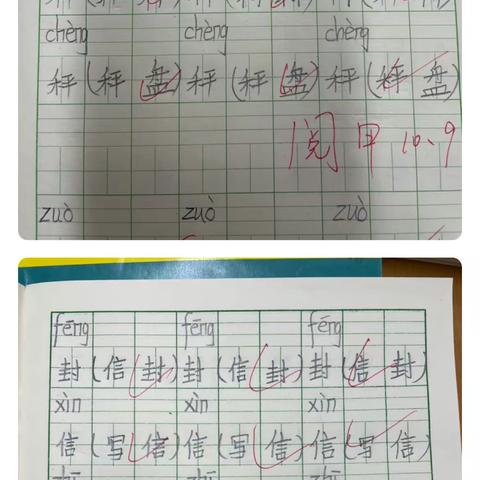 chèng chèng chèng
秤(秤盘)秤(秤盘)秤(秤盘)
阅 甲 10、9
zuò zuò zuò
fēng fēng fēng
封(信封)封(信封)封(信封)
xìn xìn xìn
信(写信)信(写信)信(写信)